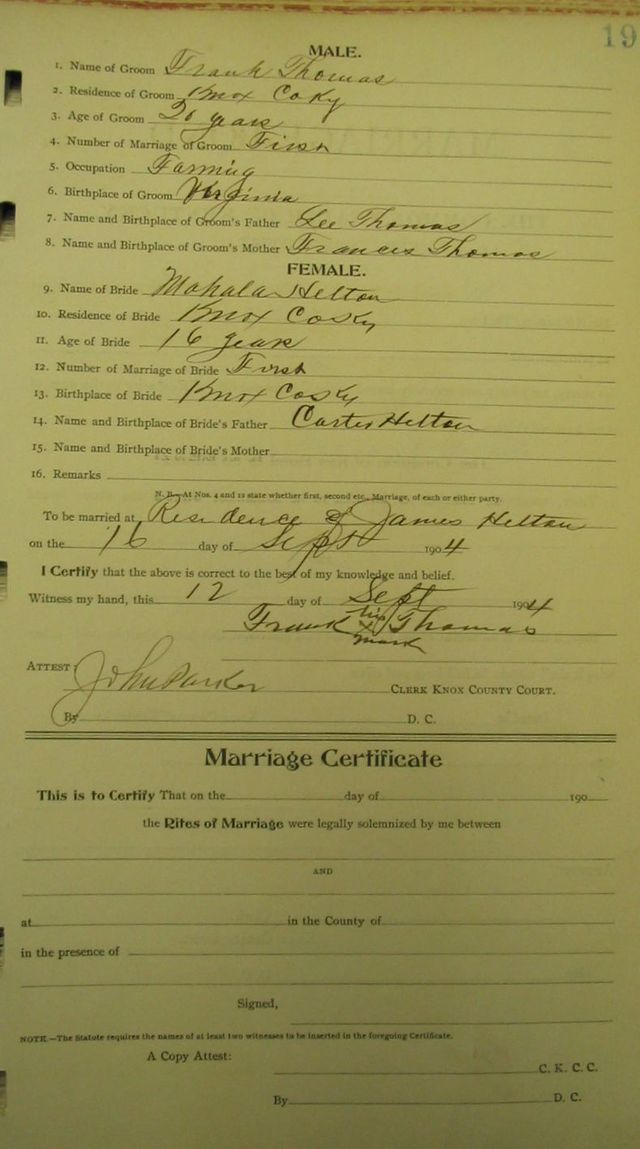 19
MALE.
1. Name of Groom Frank Thomas
2. Residence of Groom Knox Co Ky
3. Age of Groom 20 years
4. Number of Marriage of Groom First
5. Occupation Farming
6. Birthplace of Groom Virginia
7. Name and Birthplace of Groom's Father Lee Thomas
8. Name and Birthplace of Groom's Mother Frances Thomas
FEMALE.
9. Name of Bride Mahala Helton
10. Residence of Bride Knox Co Ky
11. Age of Bride 16 years
12. Number of Marriage of Bride First
13. Birthplace of Bride Knox Co Ky
14. Name and Birthplace of Bride's Father Carter Helton
15. Name and Birthplace of Bride's Mother
16. Remarks
N. B.—At Nos. 4 and 12 state whether first, second etc., Marriage, of each or either party.
To be married at Residence of James Helton
on the 16 day of Sept 1904
I Certify that the above is correct to the best of my knowledge and belief.
Witness my hand, this 12 day of Sept 1904
Frank his x mark Thomas
ATTEST: John Parker CLERK KNOX COUNTY COURT.
By D. C.
Marriage Certificate
This is to Certify That on the day of 190
the Rites of Marriage were legally solemnized by me between
AND
at in the County of
in the presence of
Signed,
NOTE.—The Statute requires the names of at least two witnesses to be inserted in the foregoing Certificate.
A Copy Attest:
C. K. C. C.
By D. C.